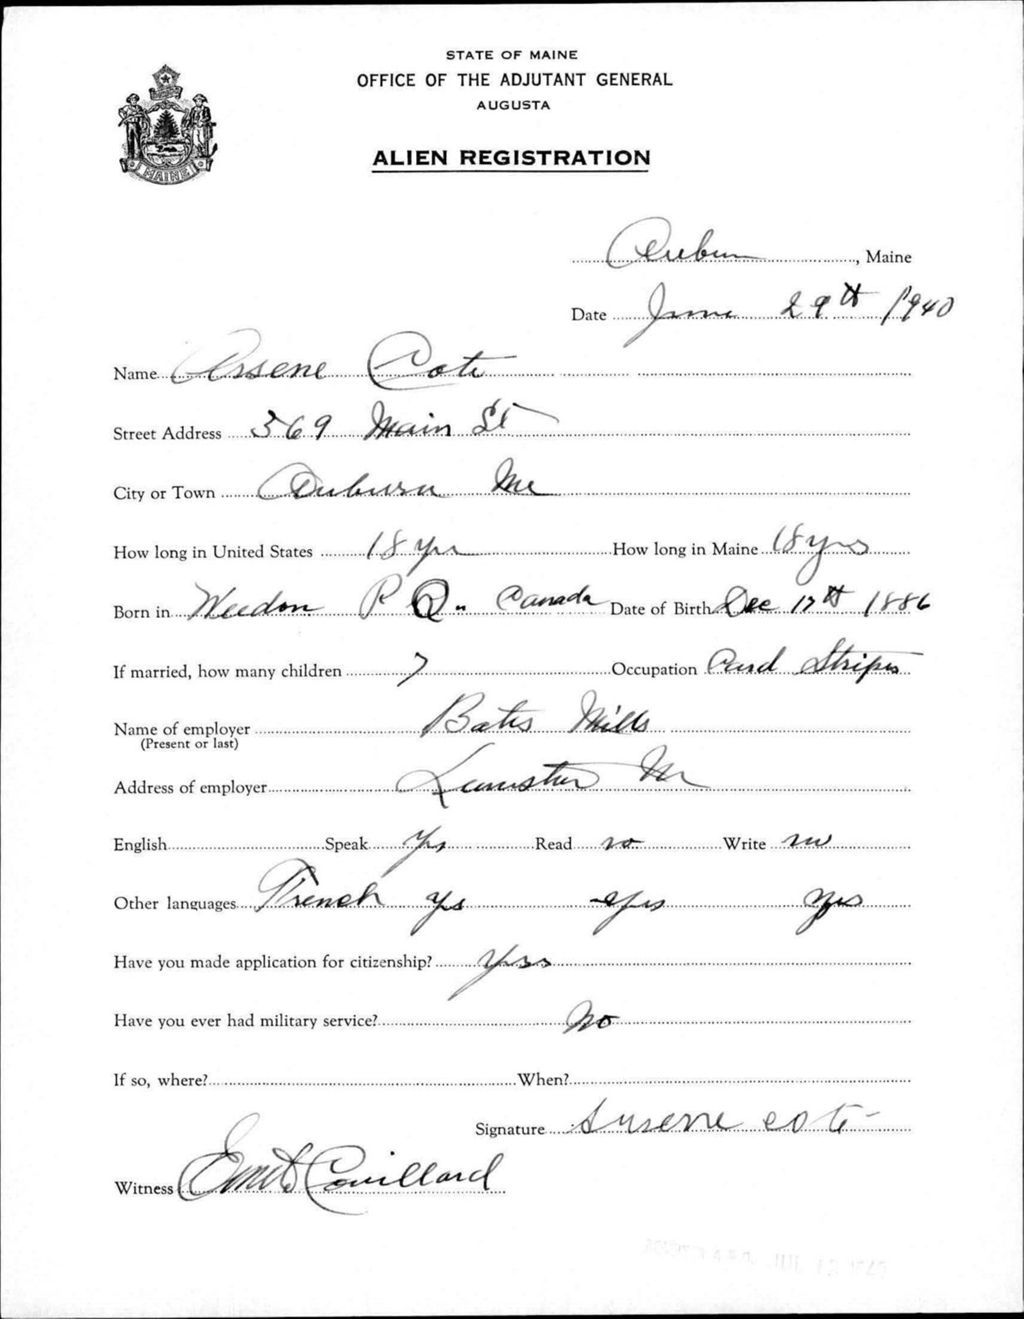 STATE OF MAINE
OFFICE OF THE ADJUTANT GENERAL
AUGUSTA
ALIEN REGISTRATION
MAINE
Auburn, Maine
Date June 29th 1940
Name Arsene Cote
Street Address 369 Main St
City or Town Auburn Me
How long in United States 18 yrs How long in Maine 18 yrs
Born in Weedon P Q. Canada Date of Birth Dec 17th 1886
If married, how many children 7 Occupation Card Striper
Name of employer Bates Mills
(Present or last)
Address of employer Lewiston Me
English Speak Yes Read no Write no
Other languages French yes yes yes
Have you made application for citizenship? Yes
Have you ever had military service? No
If so, where? When?
Signature Arsene cote
Witness Couillard